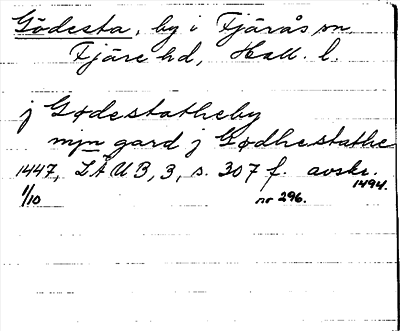 Gödesta, by i Fjärås sn.
Fjäre hd, Hall. l.
j Gødestatheby
mjn gard j Gødhestathe
1447, LÄUB, 3, s. 307 f. avskr.
1494.
1/10 nr 296.